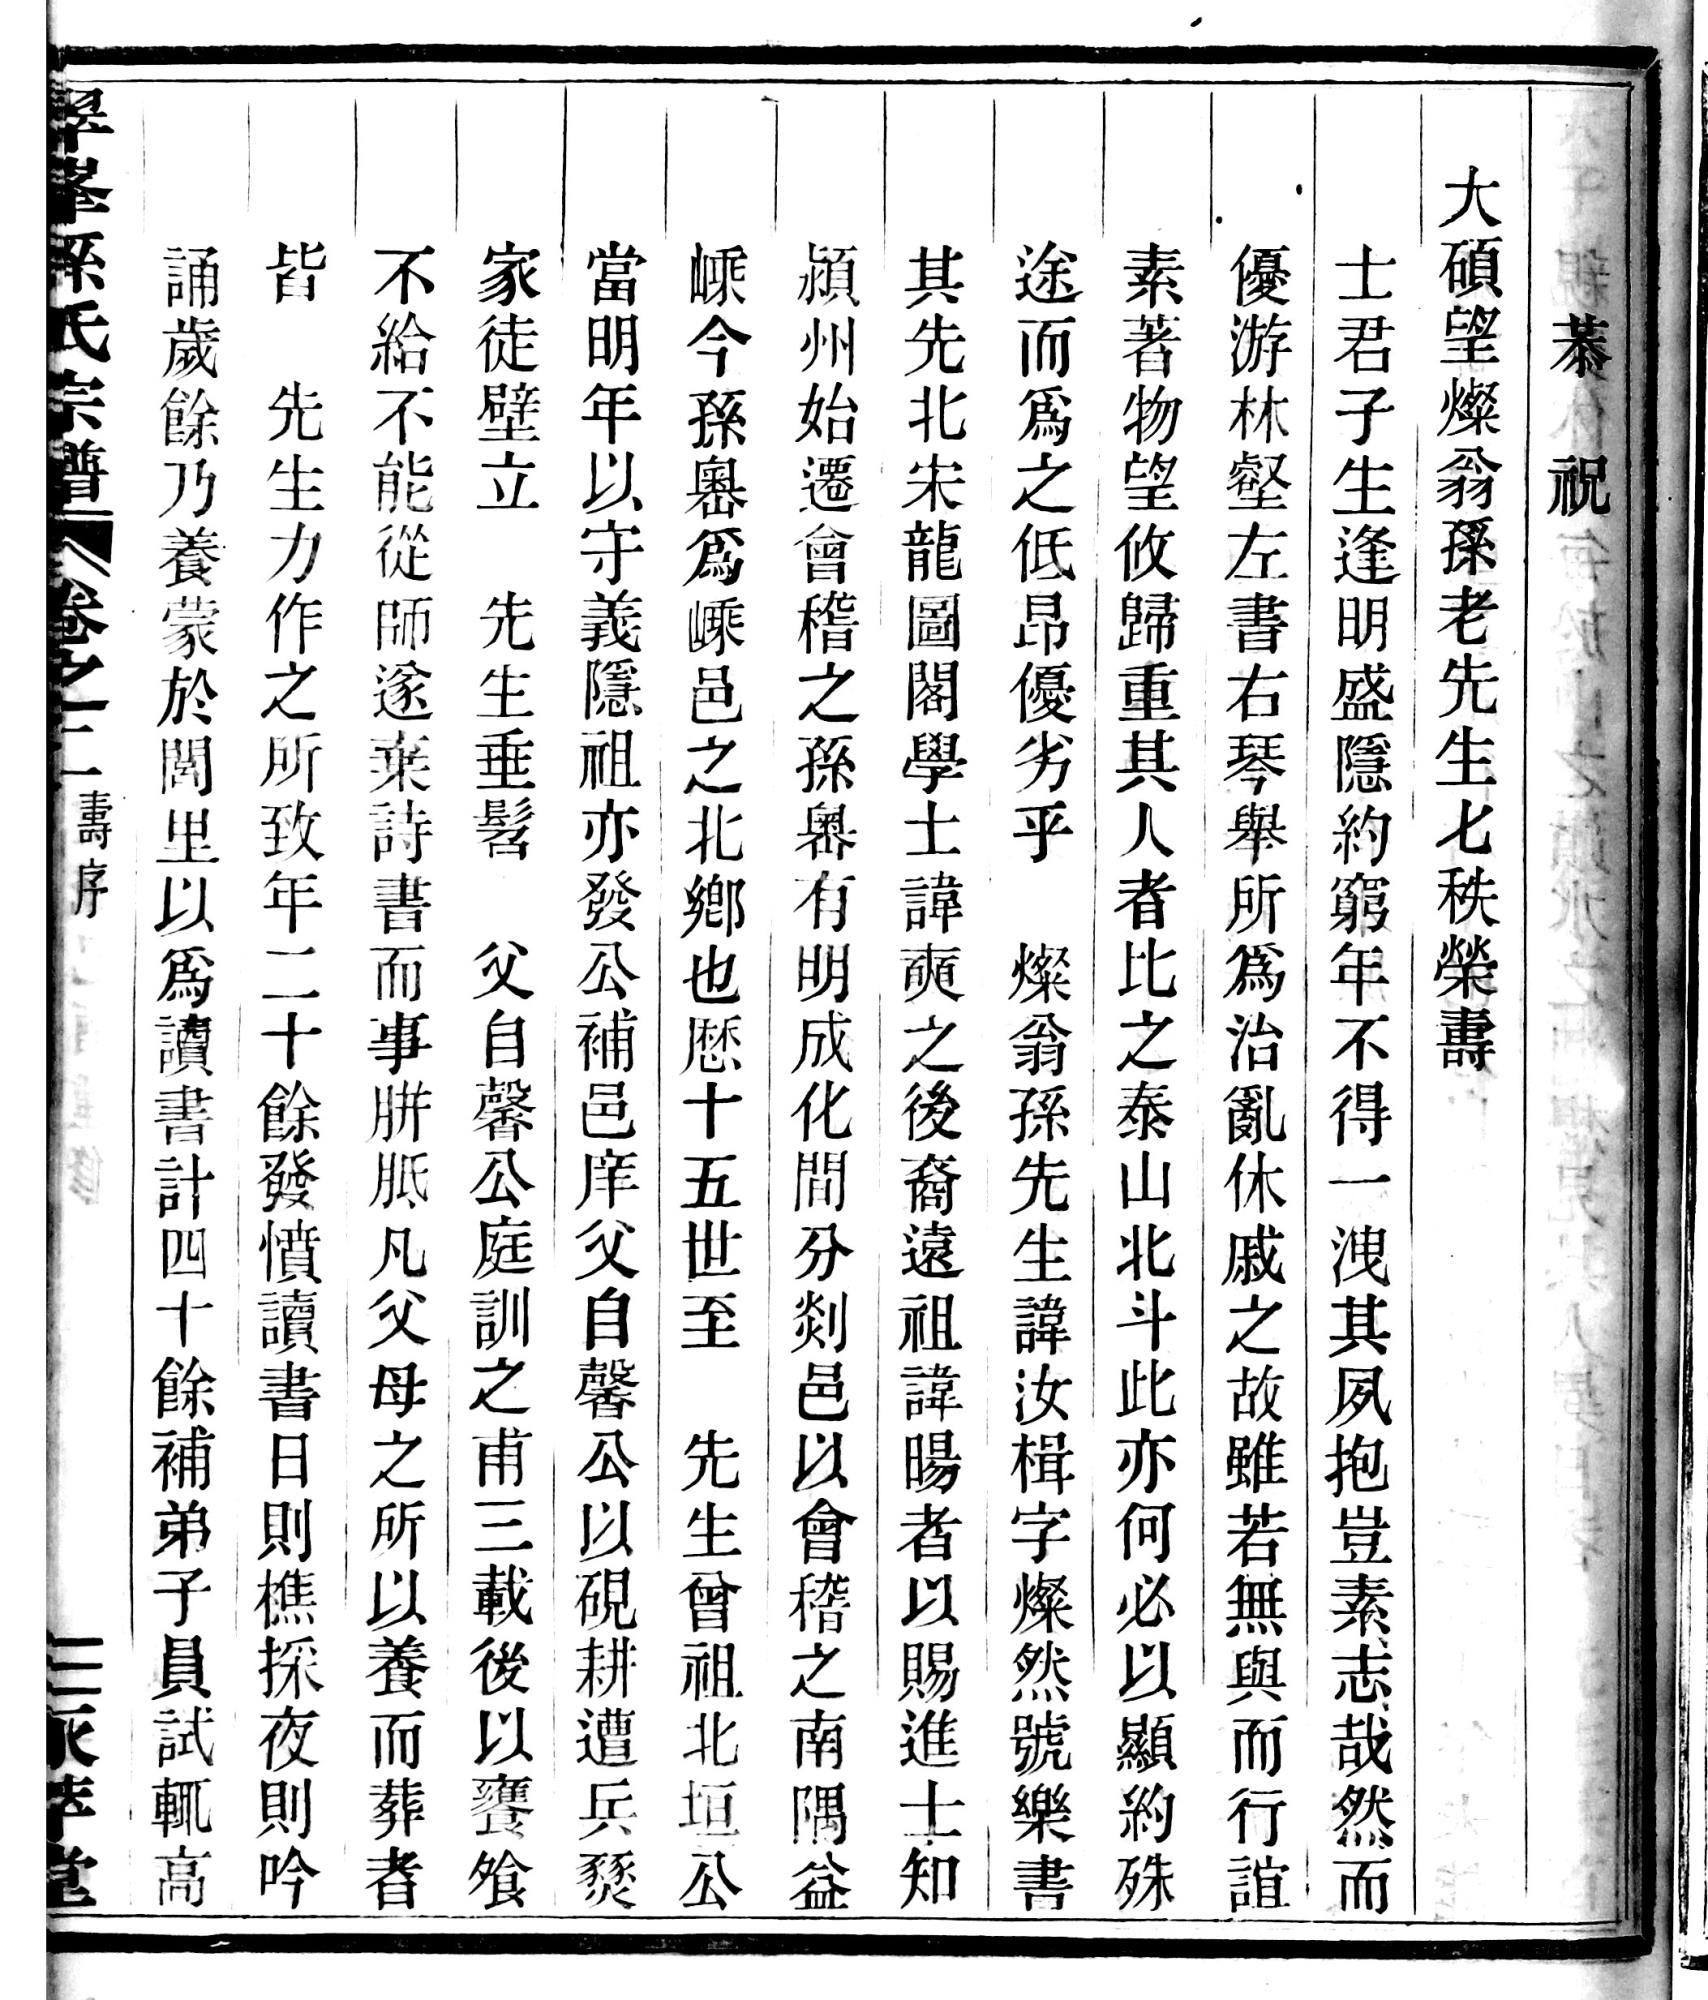 恭祝
大碩望燦翁孫老先生七秩榮壽
士君子生逢明盛隱約窮年不得一洩其夙抱豈素志哉然而
優游林壑左書右琴舉所為治亂休戚之故雖若無與而行誼
素著物望攸歸重其人者比之泰山北斗此亦何必以顯約殊
途而爲之低昂優劣乎　燦翁孫先生諱汝楫字燦然號樂書
其先北宋龍圖閣學士諱奭之後裔遠祖諱暘者以賜進士知
潁州始遷會稽之孫嶴有明成化間分剡邑以會稽之南隅益
嵊今孫嶴爲嵊邑之北鄉也歷十五世至　先生曾祖北垣公
當明年以守義隱祖亦發公補邑庠父自馨公以硯耕遭兵燹
家徒壁立　先生垂髫　父自馨公庭訓之甫三載後以饔飧
不給不能從師遂棄詩書而事胼胝凡父母之所以養而葬者
皆　先生力作之所致年二十餘發憤讀書日則樵採夜則吟
誦歲餘乃養蒙於閭里以爲讀書計四十餘補弟子員試輒高
翠峯孫氏宗譜　卷之二　壽序　二　承萃堂